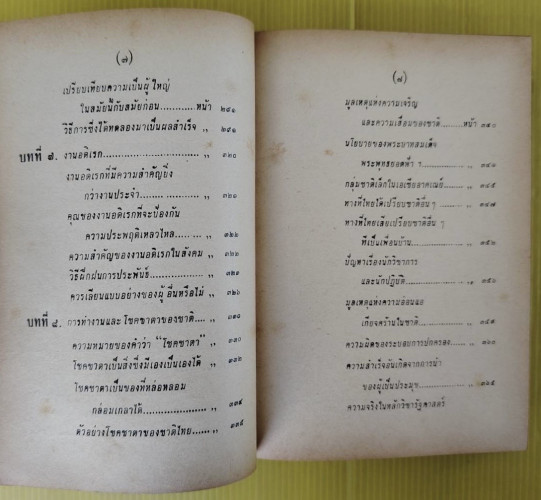 (๗)
เปรียบเทียบความเป็นผู้ใหญ่
ในสมัยนี้กับสมัยก่อน............หน้า ๒๘๑
วิธีการซึ่งได้ทดลองมาเป็นผลสำเร็จ ,, ๒๙๑
บทที่ ๗. งานอดิเรก........................ ,, ๓๒๐
งานอดิเรกที่มีความสำคัญยิ่ง
กว่างานประจำ................... ,, ๓๒๑
คุณของงานอดิเรกที่จะป้องกัน
ความประพฤติเหลวไหล............ ,, ๓๒๒
ความสำคัญของงานอดิเรกในสังคม ,, ๓๒๖
วิธีฝึกฝนการประพันธ์................ ,,
ควรเลียนแบบอย่างของผู้อื่นหรือไม่ ,, ๓๒๖
บทที่ ๘. การทำงานและโชคชาตาของชาติ.... ,, ๓๓๑
ความหมายของคำว่า "โชคชาตา" ,, ๓๓๐
โชคชาตาเป็นสิ่งซึ่งมีเองเป็นเองได้ ,, ๓๓๒
โชคชาตาเป็นของที่หล่อหลอม
กล่อมเกลาได้..................... ,, ๓๓๔
ตัวอย่างโชคชาตาของชาติไทย...... ,, ๓๓๕
(๘)
มูลเหตุแห่งความเจริญ
และความเสื่อมของชาติ.......หน้า ๓๔๐
นโยบายของพระบาทสมเด็จ
พระพุทธยอดฟ้า ฯ................. ,, ๓๔๑
กลุ่มชาติเล็กในเอเซียอาคเณย์....... ,, ๓๔๕
ทางที่ไทยได้เปรียบชาติอื่น ๆ ...... ,, ๓๔๗
ทางที่ไทยเสียเปรียบชาติอื่น ๆ
ที่เป็นเพื่อนบ้าน.................. ,, ๓๕๒
ปัญหาเรื่องนักวิชาการ
และนักปฏิบัติ..................... ,, ๓๕๖
มูลเหตุแห่งความอ่อนแอ
เกียจคร้านในชาติ................. ,, ๓๕๘
ความผิดของระบอบการปกครอง..... ,, ๓๖๐
ความสำเร็จอันเกิดจากการนำ
ของผู้เป็นประมุข.................. ,, ๓๖๕
ความจริงในหลักวิชารัฐศาสตร์